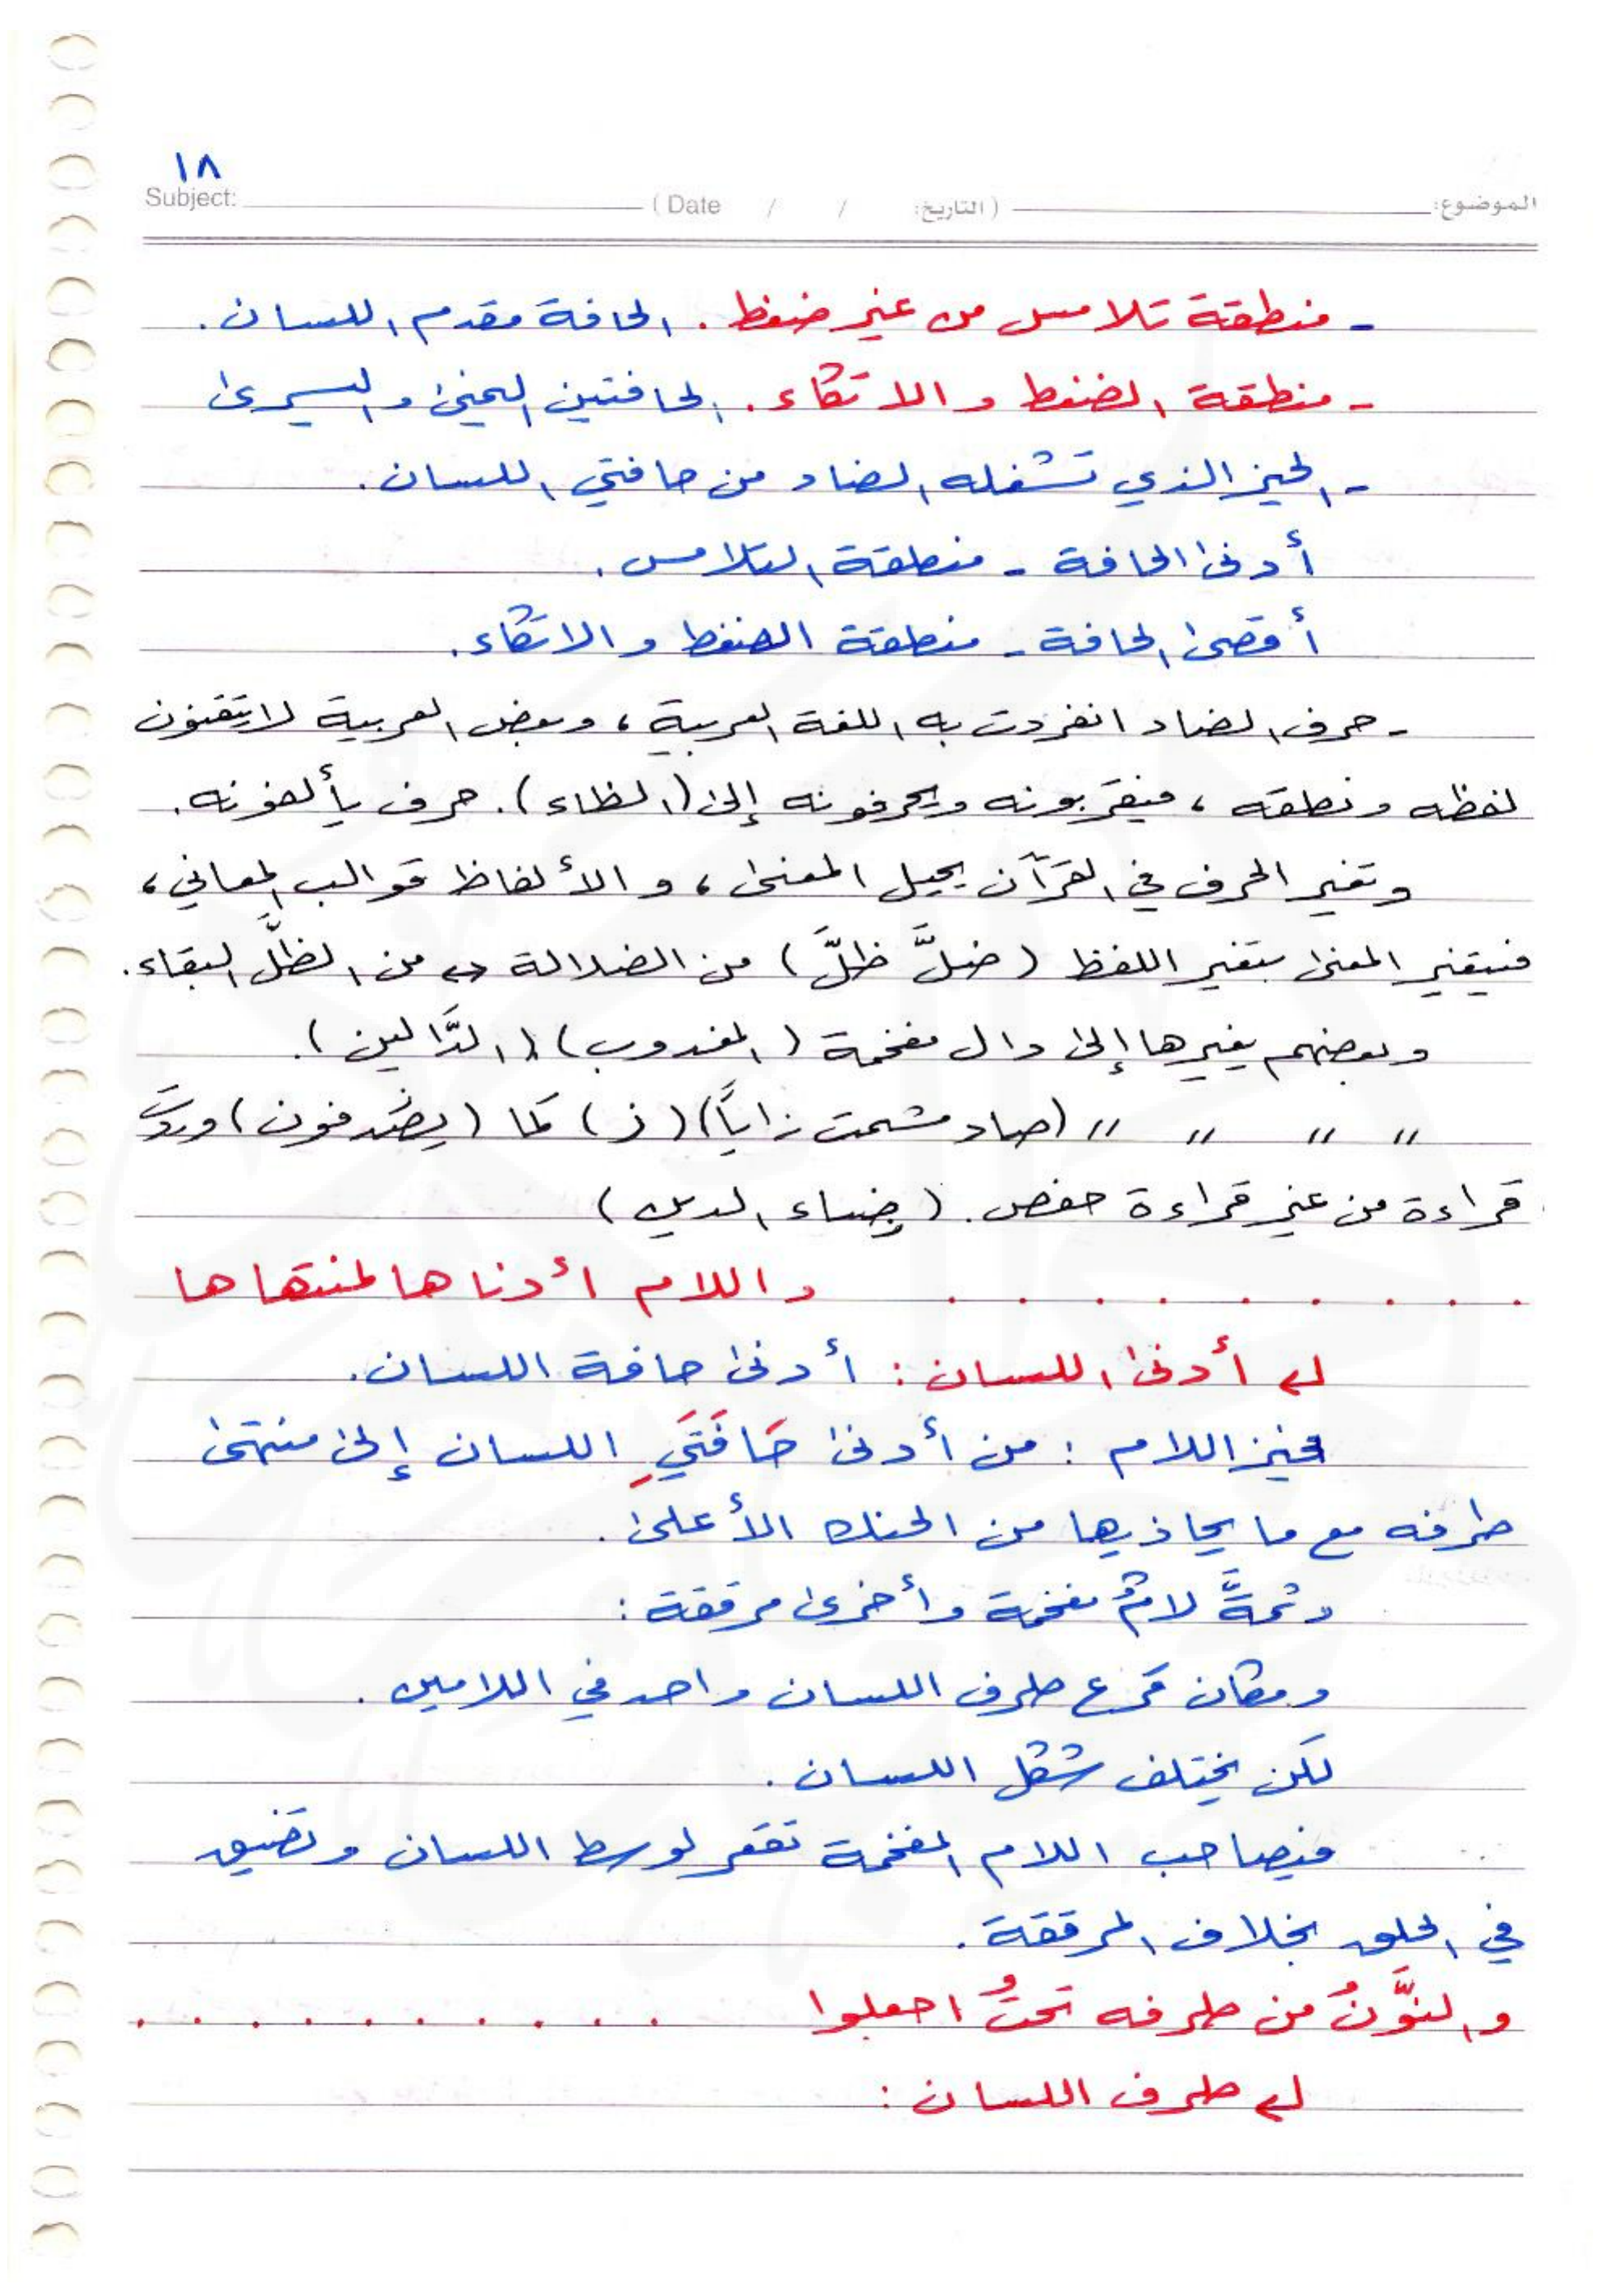 ١٨
Subject: ( Date / / التاريخ: ) الموضوع:
- منطقة تلامس من غير ضغط . الحافة مقدم اللسان .
- منطقة الضغط و الاتكاء . الحافتين اليمنى و اليسرى
- الحيز الذي تشغله الضاد من حافتي اللسان .
أدنى الحافة - منطقة التلامس .
أقصى الحافة - منطقة الضغط و الاتكاء .
- حرف الضاد انفردت به اللغة العربية ، وبعض العربية لا يتقنون
لفظه ونطقه ، فيقربونه ويحرفونه إلى (الظاء) . حرف يألفونه .
وتغير الحرف في القرآن يحيل المعنى ، و الألفاظ قوالب المعاني ،
فيتغير المعنى بتغير اللفظ ( ضلَّ ظلَّ ) من الضلالة ↔ من الظلّ البقاء .
وبعضهم يغيرها إلى دال مفخمة ( المغدوب ) ( الدَّالين ) .
〃 〃 〃 〃 (صاد مشمت زاياً) ( ز ) كما ( يصدفون ) وردت
قراءة من غير قراءة حفص . ( ضياء الدين )
. . . . . . . . . واللام أدناها لمنتهاها
لے أدنى اللسان : أدنى حافة اللسان .
فحيز اللام : من أدنى حَافَتَيِ اللسان إلى منتهى
طرفه مع ما يحاذيها من الحنك الأعلى .
وثمَّة لامٌ مفخمة وأخرى مرققة :
ومكان قرع طرف اللسان واحد في اللامين .
لكن يختلف شكل اللسان .
فيصاحب اللام المفخمة تقعر لوسط اللسان وتضيق
في الحلق بخلاف المرققة .
و النُّونُ من طرفه تحتُ اجعلوا . . . . . . . . .
لے طرف اللسان :